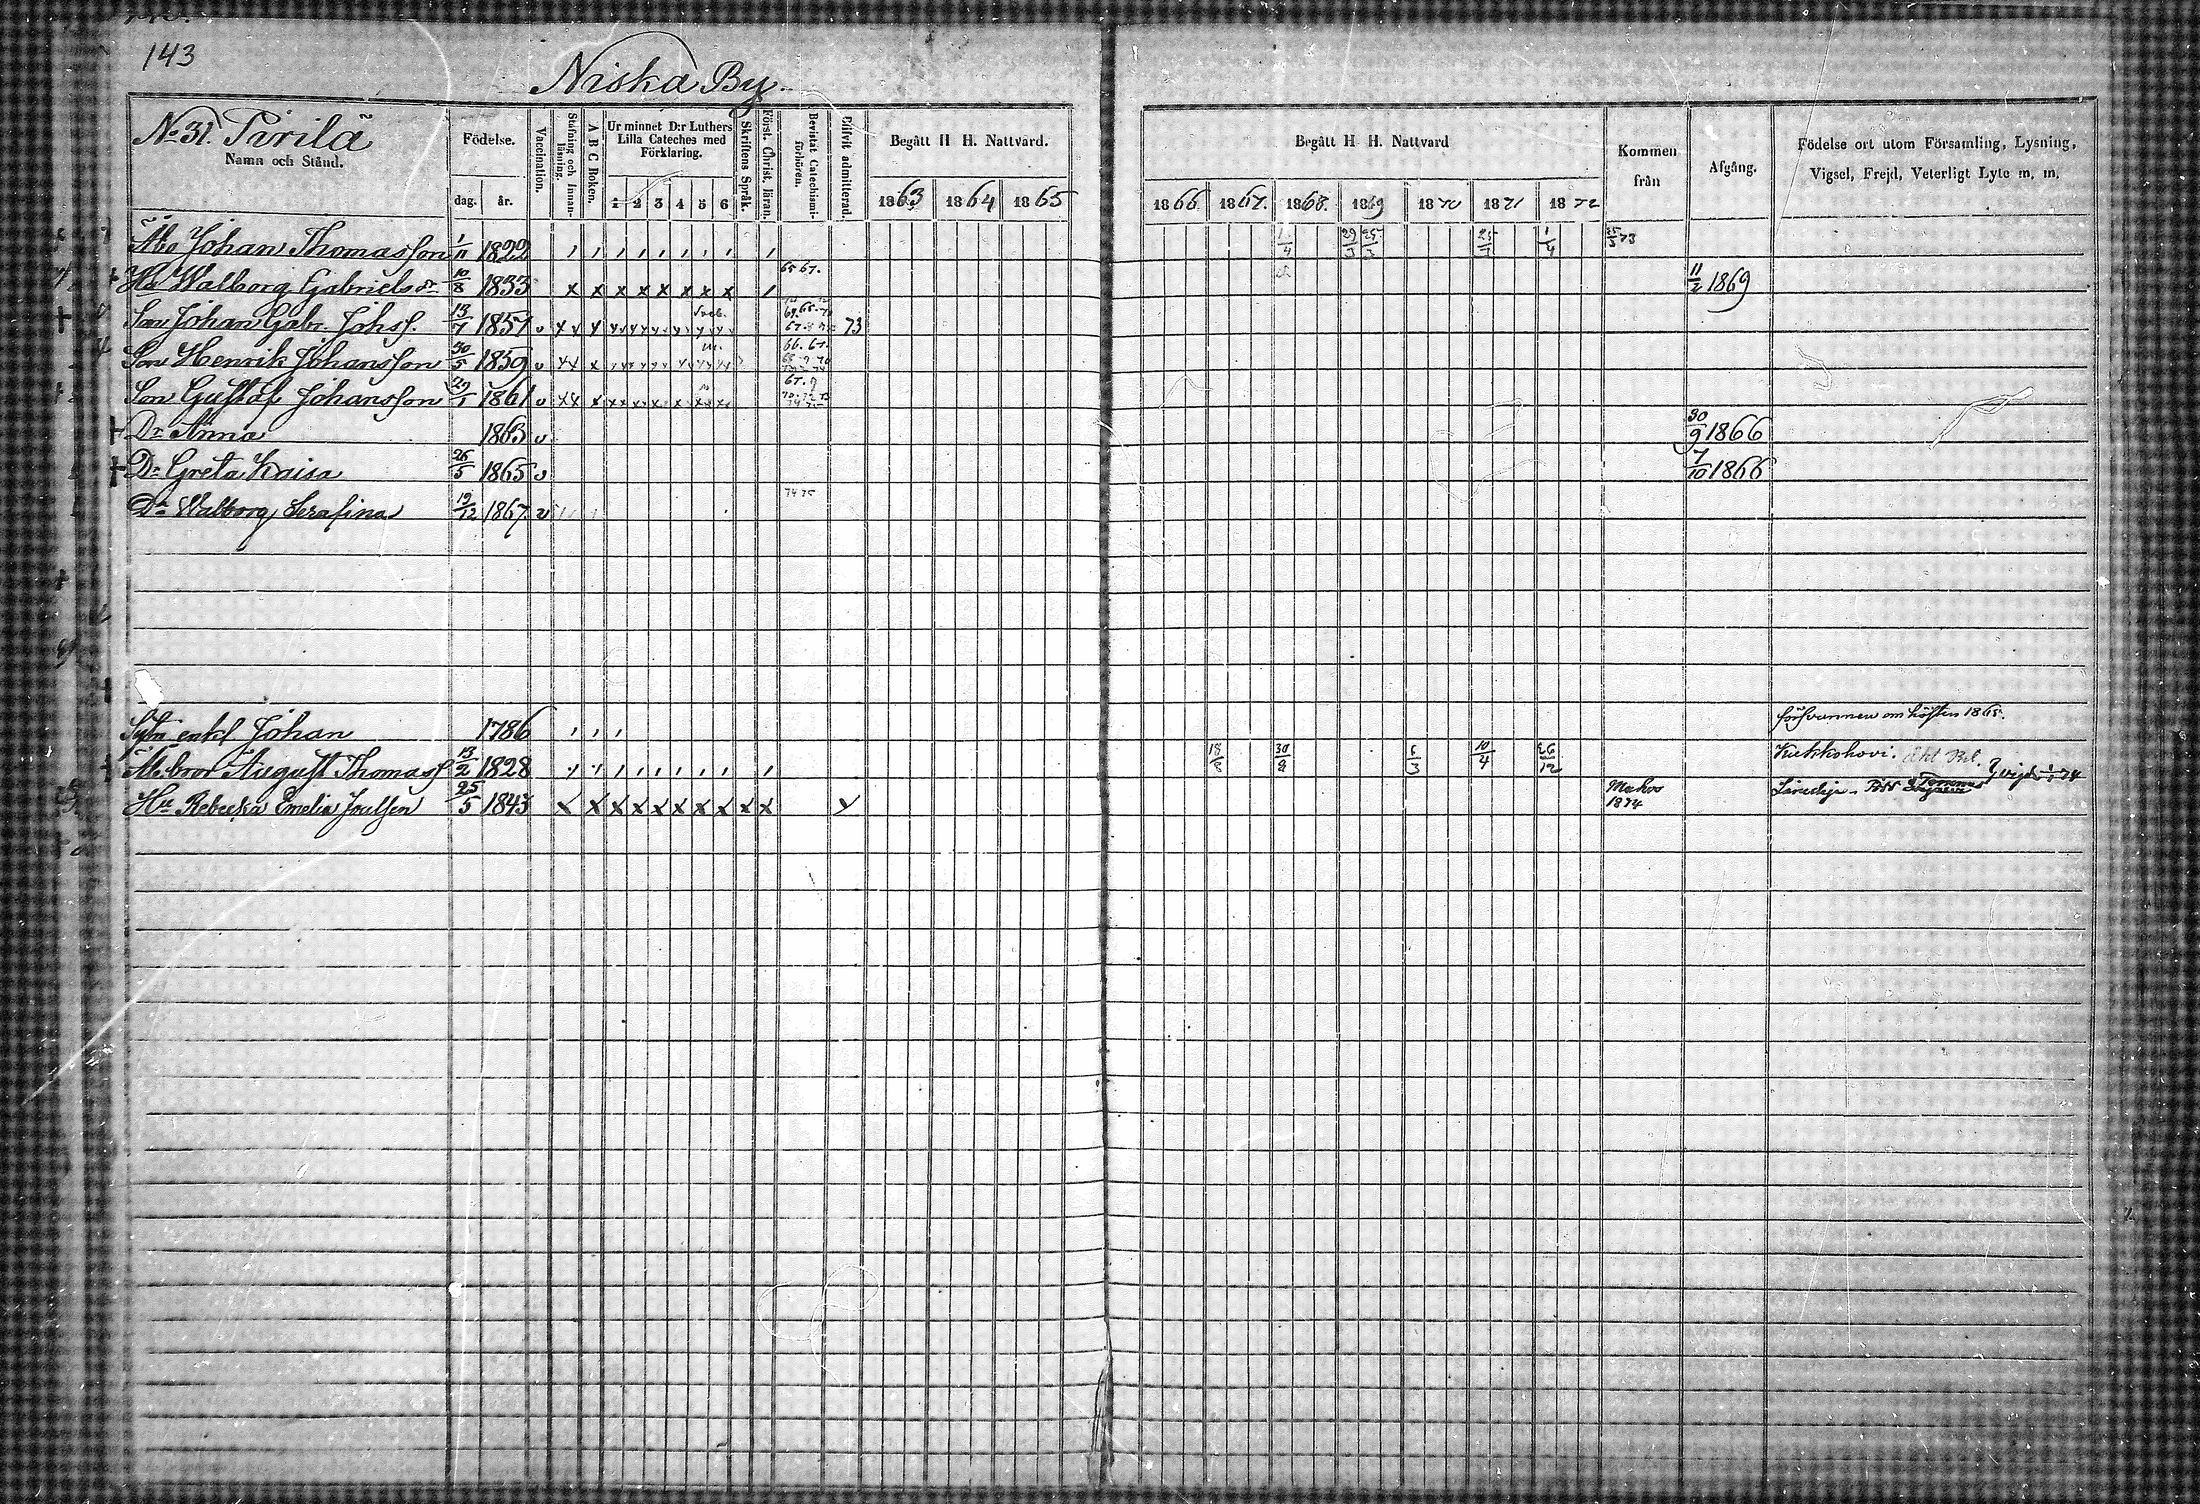 143
Niska By
No 31. Pirilä
Namn och Stånd.
Födelse.
dag. år.
Vaccination.
Stafning och innan-läsning.
A B C Boken.
Ur minnet D:r Luthers Lilla Cateches med Förklaring.
1 2 3 4 5 6
Skriftens Språk.
Först. Christ. läran.
Bevistat Catechismi-förhören.
Blifvit admitterad.
Begått H H. Nattvard.
1863 1864 1865
Begått H H. Nattvard
1866 1867. 1868. 1869 1870 1871 1872
Kommen från
Afgång.
Födelse ort utom Församling, Lysning, Vigsel, Frejd, Veterligt Lyte m, m,
Åbo Johan Thomasson 1/11 1822 1/4 29/3 25/3 1/4
Hu Walborg Gabrielsdr 10/8 1833 65 67. 11/2 1869
Son Johan Gabr. Johsf. 13/7 1857 v 73
Son Henrik Johansson 30/5 1859 v 66. 67.
Son Gustaf Johansson 29/1 1861 v 67. 9
Dr Anna 1863 v 30/9 1866
Dr Greta Kaisa 26/5 1865 v 7/10 1866
Dr Walborg Serafina 19/12 1867. v 74 75
Sytn enkl Johan 1786 försvunnen om hösten 1865.
Åb. bror August Thomasf 13/2 1828 18/8 30/8 6/3 10/4 26/12 Kukkohovi.
Hu Rebecka Emelia 25/5 1843 1874